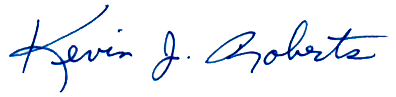 Kevin J. Roberts